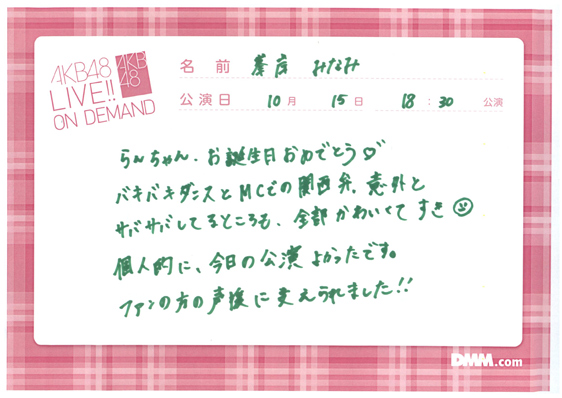 AKB48
LIVE!!
ON DEMAND
AKB
48
名 前 みなみ
公演日 10月 15日 18:30 公演
らんちゃん、お誕生日おめでとう♡
バキバキダンスとMCでの関西弁、意外と
サバサバしてるところも、全部かわいくてすき☺
個人的に、今日の公演よかったです。
ファンの方の声援に支えられました!!
DMM.com